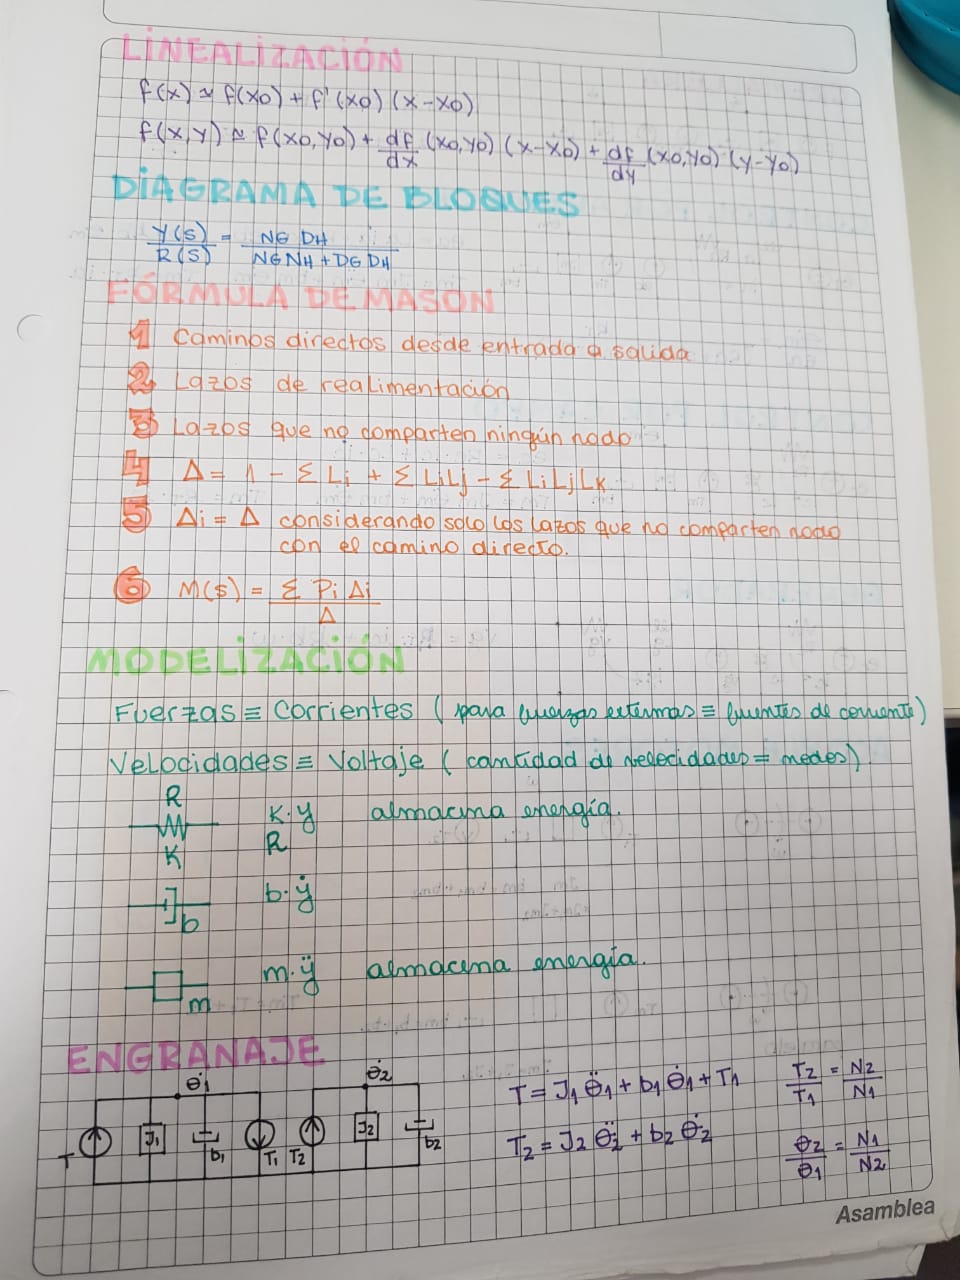 LINEALIZACIÓN
f(x) ≃ f(x0) + f'(x0) (x-x0)
f(x,y) ≃ f(x0,y0) + df/dx (x0,y0) (x-x0) + df/dy (x0,y0) (y-y0)
DIAGRAMA DE BLOQUES
Y(s)/R(s) = NG DH / NG NH + DG DH
FÓRMULA DE MASON
1 Caminos directos desde entrada a salida
2 Lazos de realimentación
3 Lazos que no comparten ningún nodo
4 Δ = 1 - Σ Li + Σ LiLj - Σ LiLjLk
5 Δi = Δ considerando solo los lazos que no comparten nodo
con el camino directo.
6 M(s) = Σ Pi Δi / Δ
MODELIZACIÓN
Fuerzas ≡ Corrientes (para fuerzas externas ≡ fuentes de corriente)
Velocidades ≡ Voltaje (cantidad de velocidades = nodos)
R
K
K·y almacena energía.
R
b
b·ẏ
m
m·ÿ almacena energía.
ENGRANAJE
θ̇1 θ̇2
T J1 b1 T1 T2 J2 b2
T = J1 θ̈1 + b1 θ̇1 + T1
T2 = J2 θ̈2 + b2 θ̇2
T2/T1 = N2/N1
θ2/θ1 = N1/N2
Asamblea